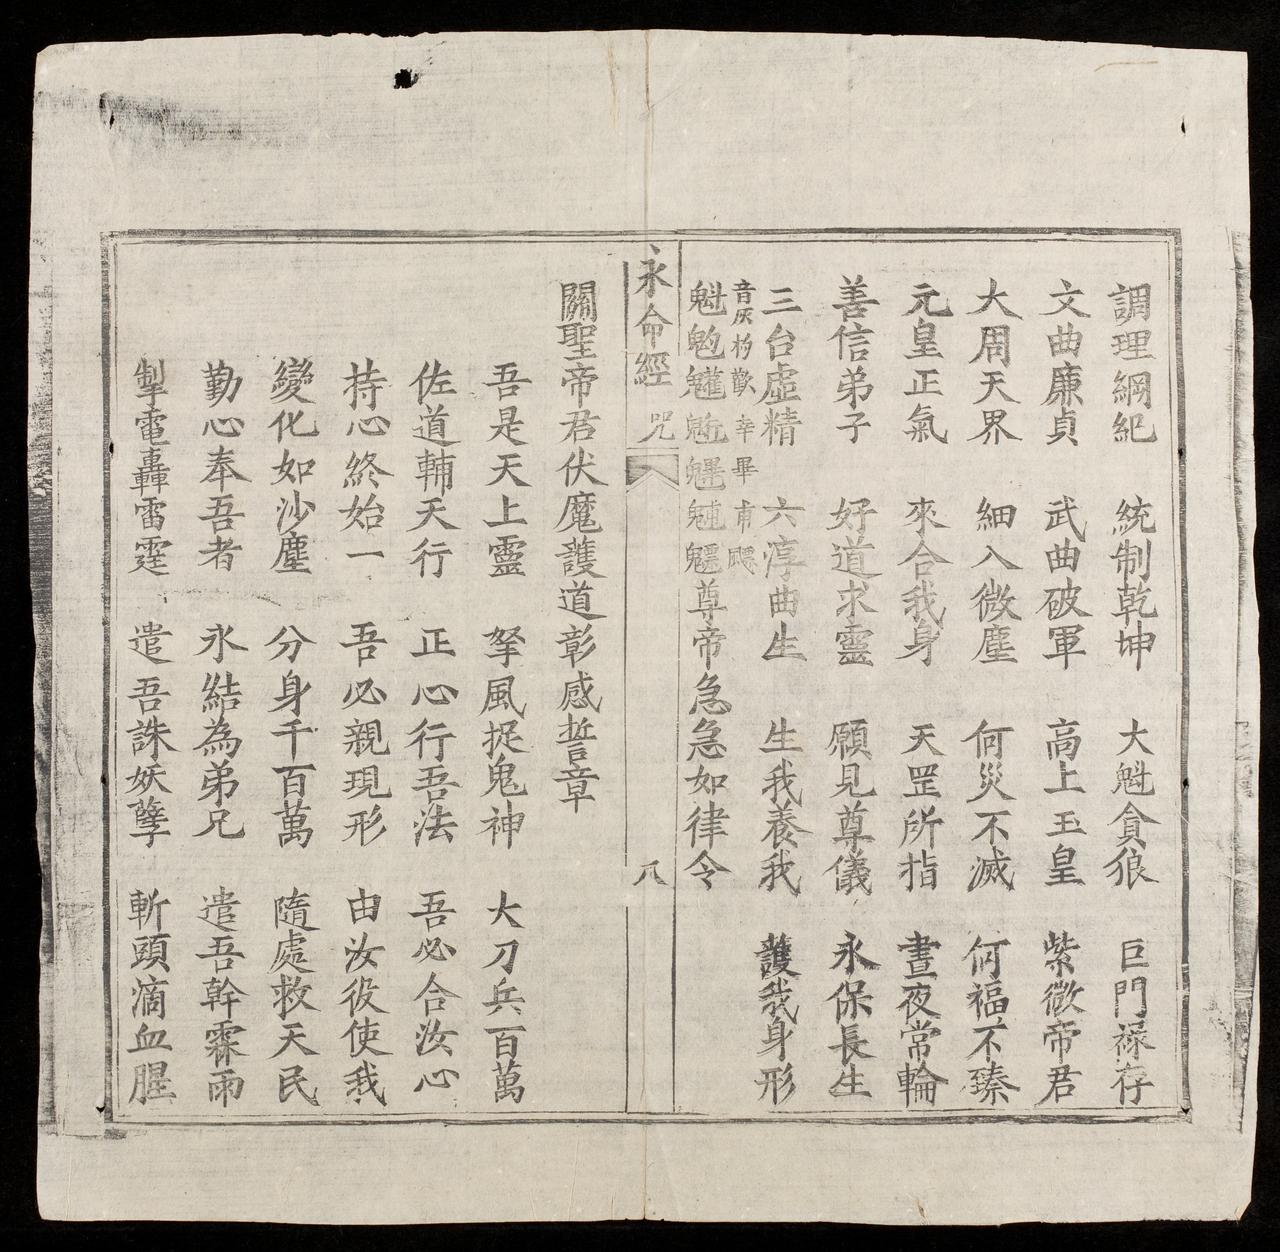 調理綱紀 統制乾坤 大魁貪狼 巨門祿存
文曲廉貞 武曲破軍 高上玉皇 紫微帝君
大周天界 細入微塵 何災不滅 何福不臻
元皇正氣 來合我身 天罡所指 晝夜常輪
善信弟子 好道求靈 願見尊儀 永保長生
三台虛精 六淳曲生 生我養我 護我身形
音灰杓歡幸畢甫飄
魁𩲃魓尊帝急急如律令
永命經 咒 八
關聖帝君伏魔護道彰感誓章
吾是天上靈 拏風捉鬼神 大刀兵百萬
佐道輔天行 正心行吾法 吾必合汝心
持心終始一 吾必親現形 由汝役使我
變化如沙塵 分身千百萬 隨處救天民
勤心奉吾者 氷結為弟兄 遣吾幹霖雨
掣電轟雷霆 遣吾誅妖孽 斬頭滴血腥